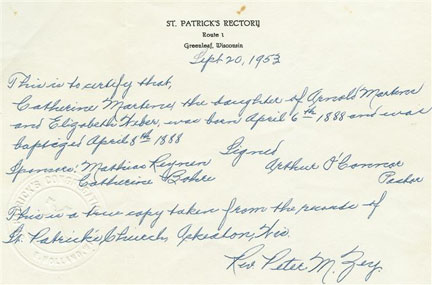 ST. PATRICK'S RECTORY
Route 1
Greenleaf, Wisconsin
Sept 20, 1953
This is to certify that,
Catherine Martens, the daughter of Arnold Martens
and Elizabeth Weber, was born April 6th 1888 and was
baptized April 8th 1888
Signed
Sponsors: Mathias Reynen
Arthur O'Connor
Catherine
Pastor
This is a true copy taken from the records of
St. Patrick's Church, Askeaton, Wis.
Rev Peter M. Zey.